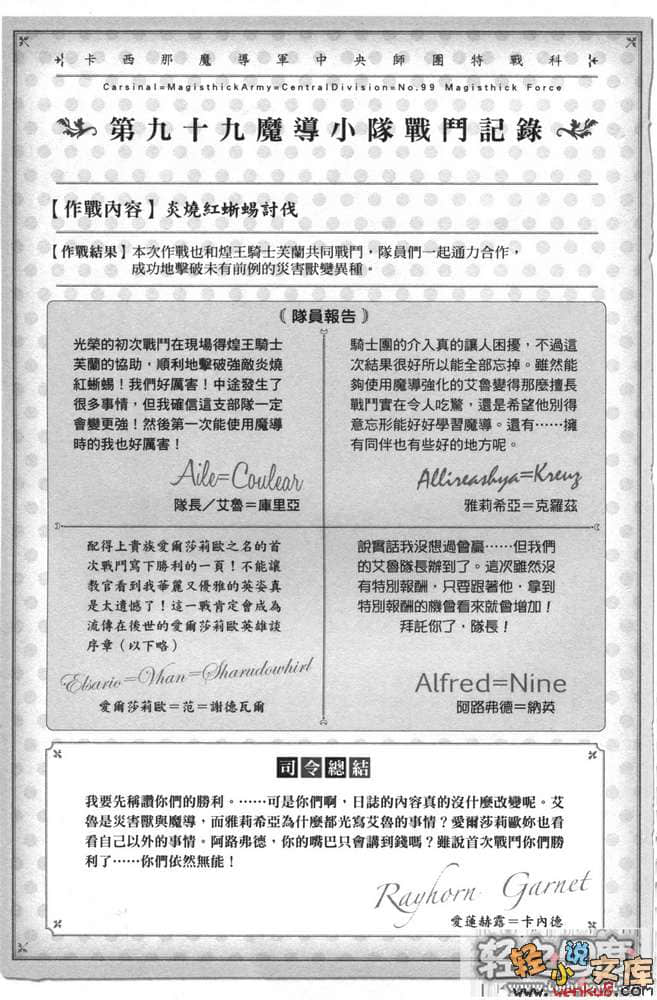 卡西那魔導軍中央師團特戰科
Carsinal=MagisthickArmy=CentralDivision=No.99 Magisthick Force
第九十九魔導小隊戰鬥記錄
【作戰內容】炎燒紅蜥蜴討伐
【作戰結果】本次作戰也和煌王騎士芙蘭共同戰鬥，隊員們一起通力合作，
成功地擊破未有前例的災害獸變異種。
〔隊員報告〕
光榮的初次戰鬥在現場得煌王騎士
芙蘭的協助，順利地擊破強敵炎燒
紅蜥蜴！我們好厲害！中途發生了
很多事情，但我確信這支部隊一定
會變更強！然後第一次能使用魔導
時的我也好厲害！
Aile=Coulear
隊長／艾魯＝庫里亞
騎士團的介入真的讓人困擾，不過這
次結果很好所以能全部忘掉。雖然能
夠使用魔導強化的艾魯變得那麼擅長
戰鬥實在令人吃驚，還是希望他別得
意忘形能好好學習魔導。還有……擁
有同伴也有些好的地方呢。
Allireashya=Kreuz
雅莉希亞＝克羅茲
配得上貴族愛爾莎莉歐之名的首
次戰鬥寫下勝利的一頁！不能讓
教官看到我華麗又優雅的英姿真
是太遺憾了！這一戰肯定會成為
流傳在後世的愛爾莎莉歐英雄談
序章（以下略）
Elsario=Vhan=Sharudowhirl
愛爾莎莉歐＝范＝謝德瓦爾
說實話我沒想過會贏……但我們
的艾魯隊長辦到了。這次雖然沒
有特別報酬，只要跟著他，拿到
特別報酬的機會看來就會增加！
拜託你了，隊長！
Alfred=Nine
阿路弗德＝納英
司令總結
我要先稱讚你們的勝利。……可是你們啊，日誌的內容真的沒什麼改變呢。艾
魯是災害獸與魔導，而雅莉希亞為什麼都光寫艾魯的事情？愛爾莎莉歐妳也看
看自己以外的事情。阿路弗德，你的嘴巴只會講到錢嗎？雖說首次戰鬥你們勝
利了……你們依然無能！
Rayhorn Garnet
愛蓮赫露＝卡內德
轻小说文库
www.wenku8.com